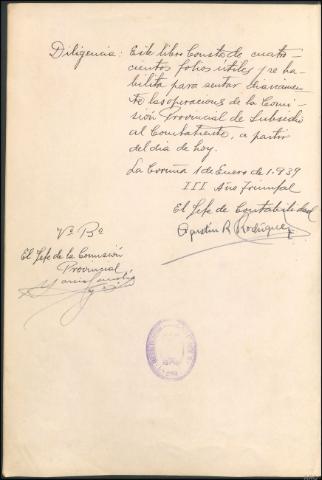 Diligencia: Este libro consta de cuatro-
cientos folios útiles y se ha-
bilita para sentar diariamen-
te las operaciones de la Comi-
sión Provincial de Subsidio
al Combatiente, a partir
del día de hoy.
La Coruña 1 de Enero de 1.939
III Año Triunfal
El Jefe de Contabilidad
Agustín R. Rodríguez
Vº Bº
El Jefe de la Comisión
Provincial